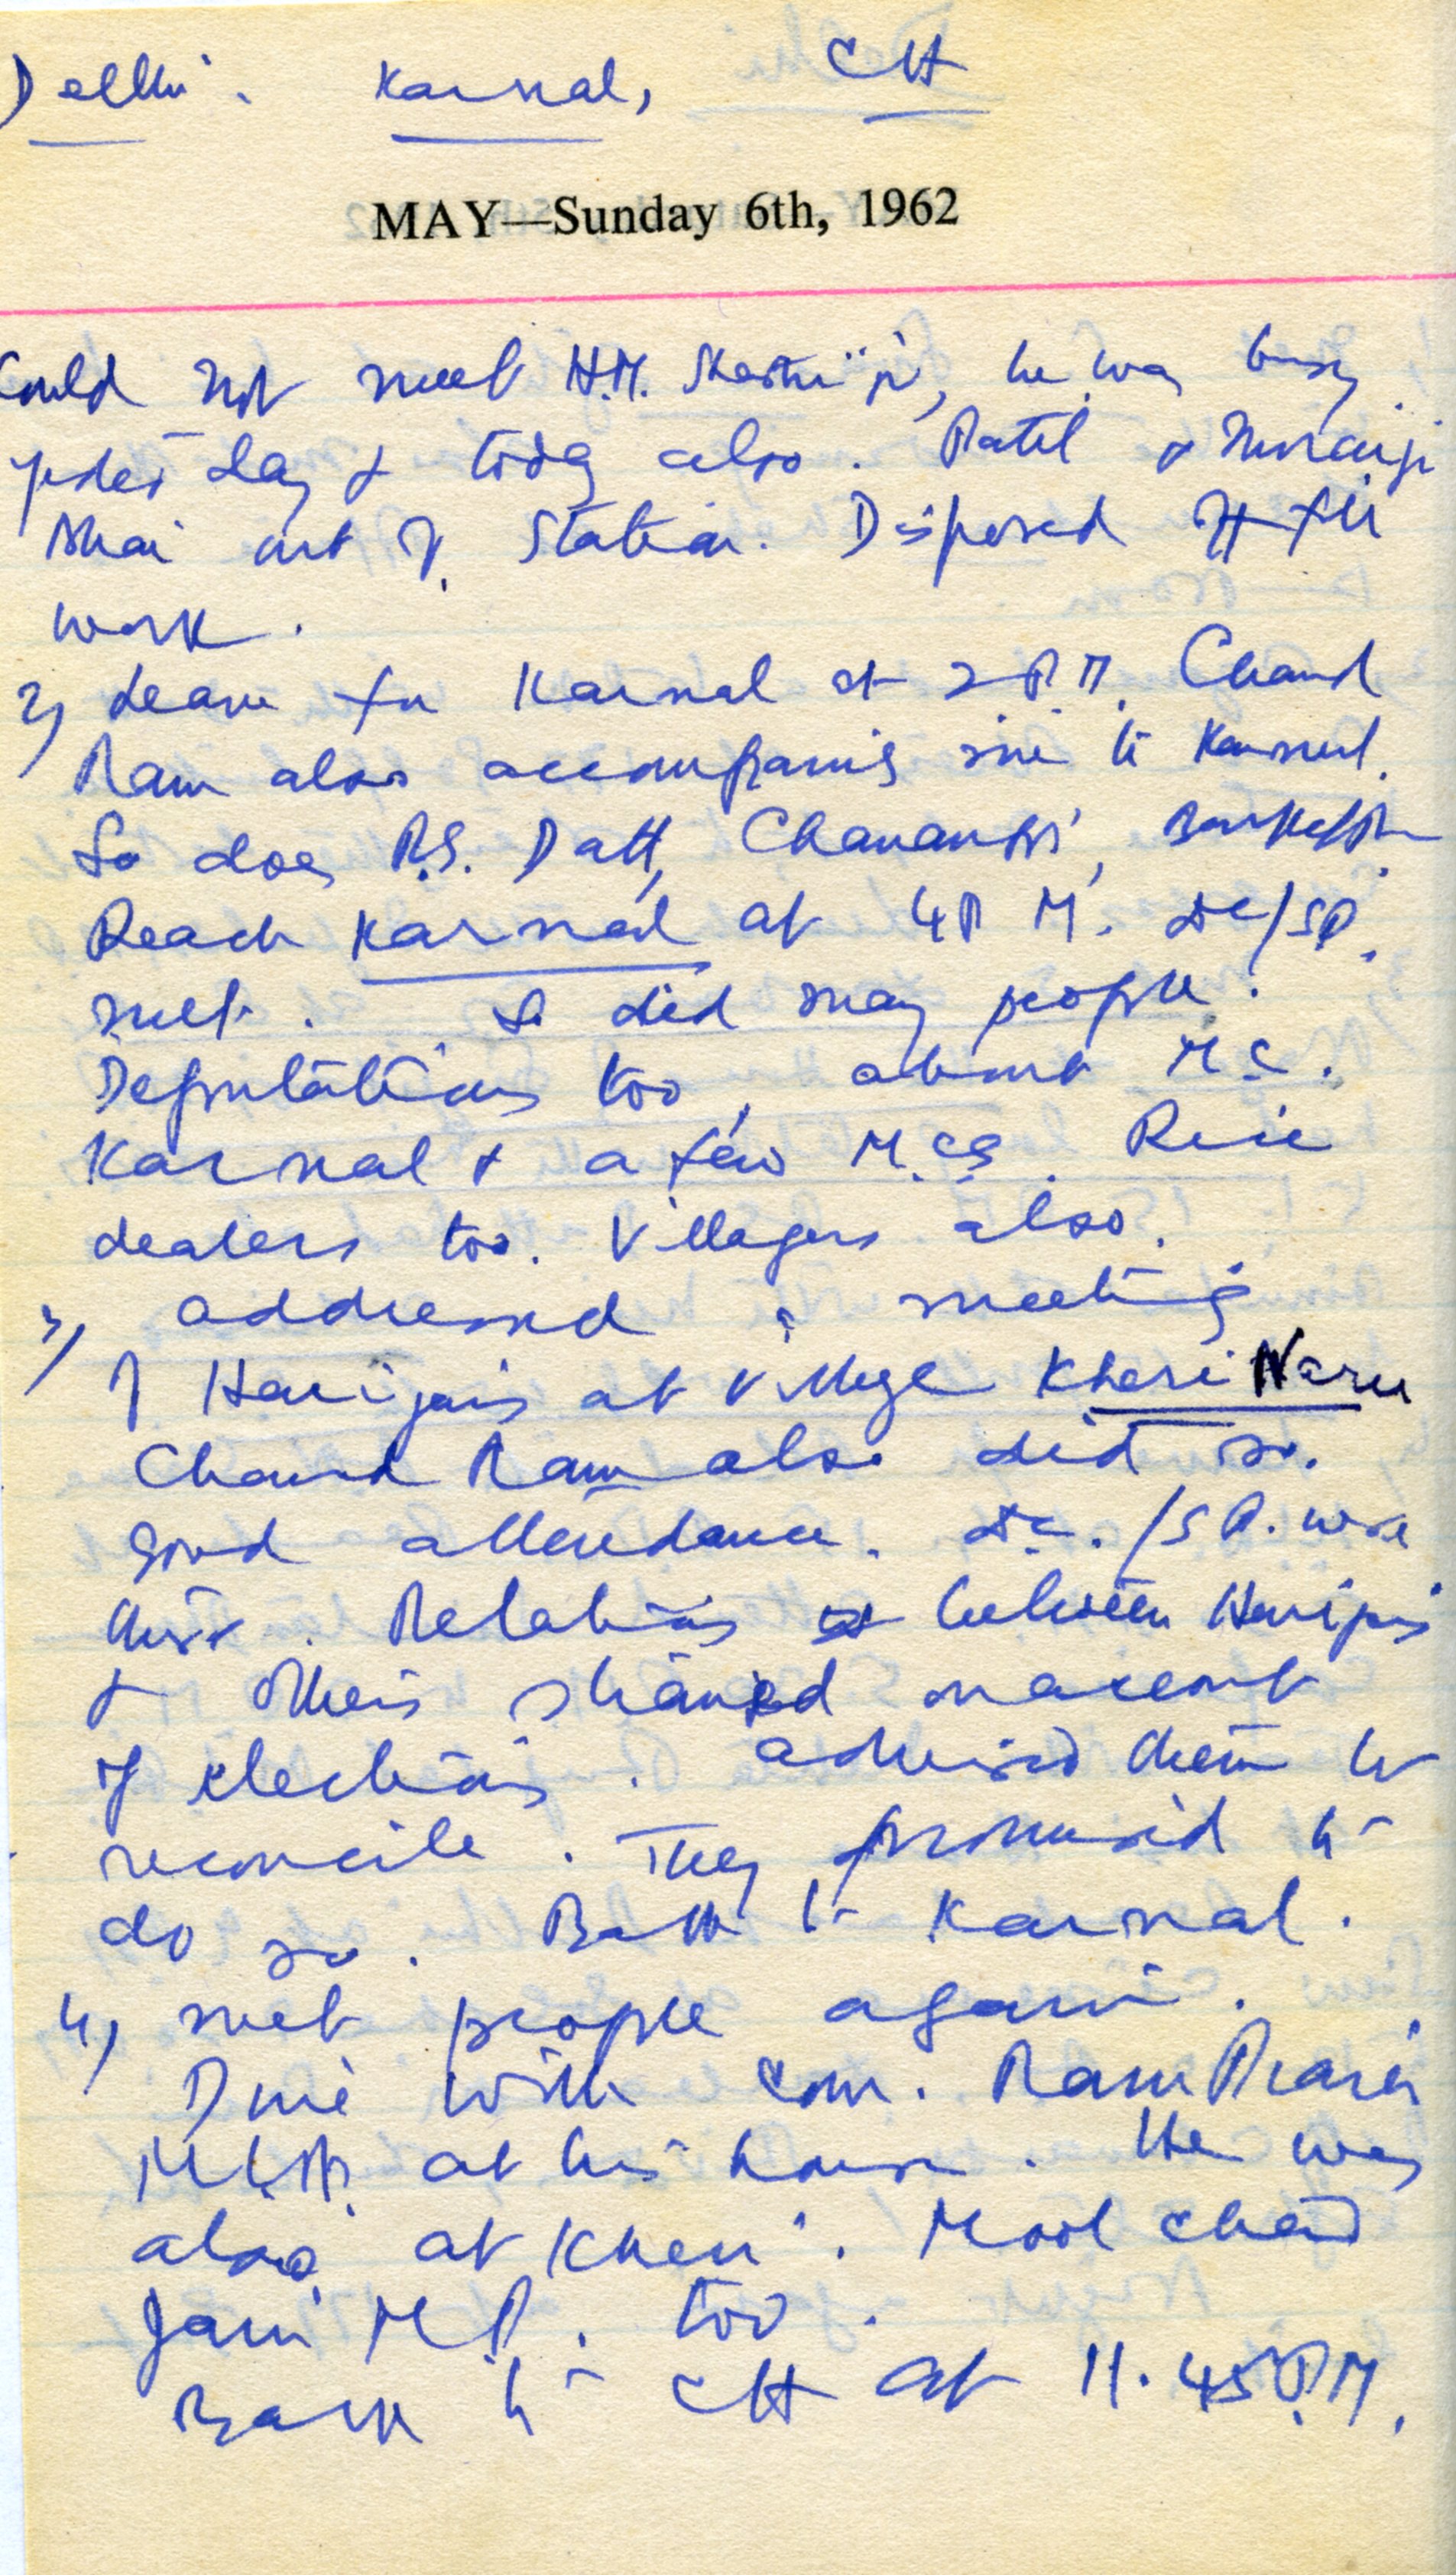 Delhi. Karnal, CH
MAY—Sunday 6th, 1962
Could not meet H.M. Shastri ji, he was busy
yesterday & today also. Patel & Murarji
Bhai out of station. Disposed off file
work.
2) Leave for Karnal at 2 P.M. Chand
Ram also accompanies me to Karnal.
So does R.S. Datt,
Reach Karnal at 4 P M. DC/SP.
met. So did many people.
Deputations too, about M.C.
Karnal & a few M.Cs. Rice
dealers too. Villagers also.
3) addressed a meeting
of Harijans at village Kheri Naru
Chand Ram also did so.
Good attendance. DC./S P. were
there. Relations between Harijans
& others strained on account
of elections. advised them to
reconcile. They promised to
do so. Back to Karnal.
4) met people again.
Dine with com. Ram Piara
M.L.A. at his house. He was
also at Kheri. Mool chand
Jain M P. too.
Back to CH at 11.45 P.M.